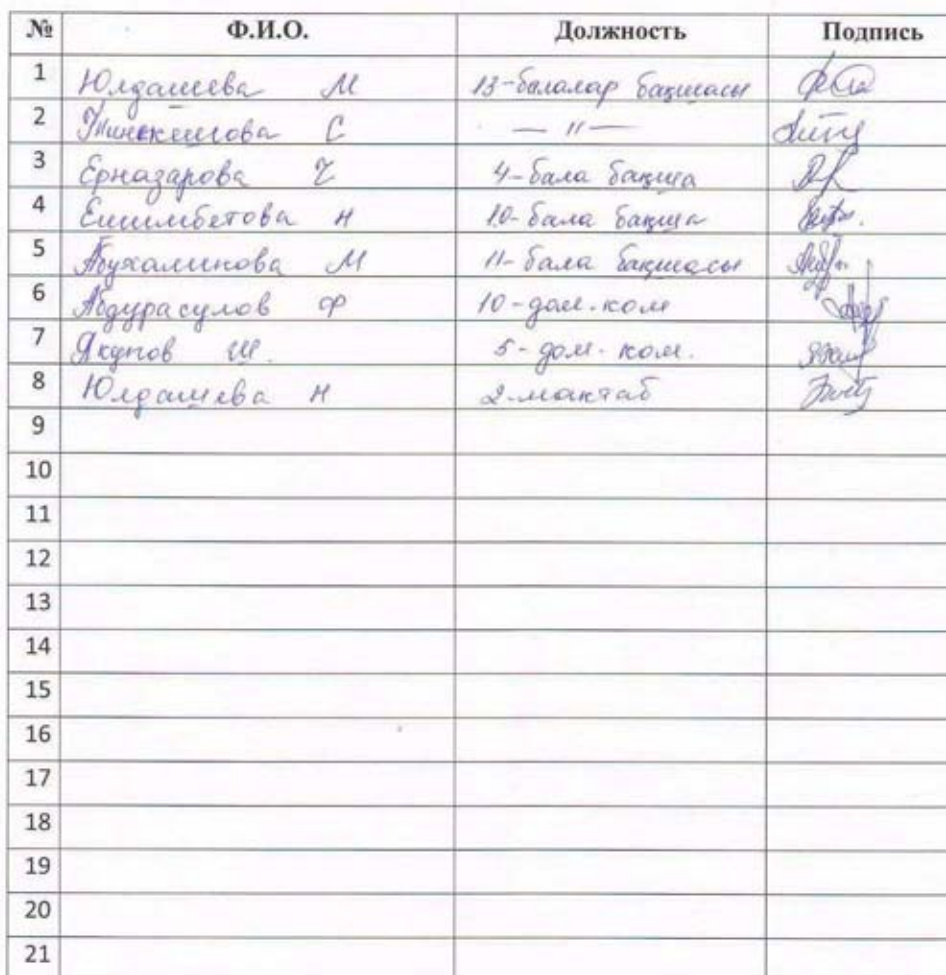 № Ф.И.О. Должность Подпись
1 Юлдашева М 13-балалар бақшасы
2 С — 11 —
3 Ерназарова 4-бала бақша
4 Ешимбетова Н 10-бала бақша
5 Абухаликова М 11-бала бақшасы
6 Абдурасулов Ф 10-дом.ком
7 Якупов Ш. 5-дом.ком.
8 Юлдашева Н 2-мактаб
9
10
11
12
13
14
15
16
17
18
19
20
21